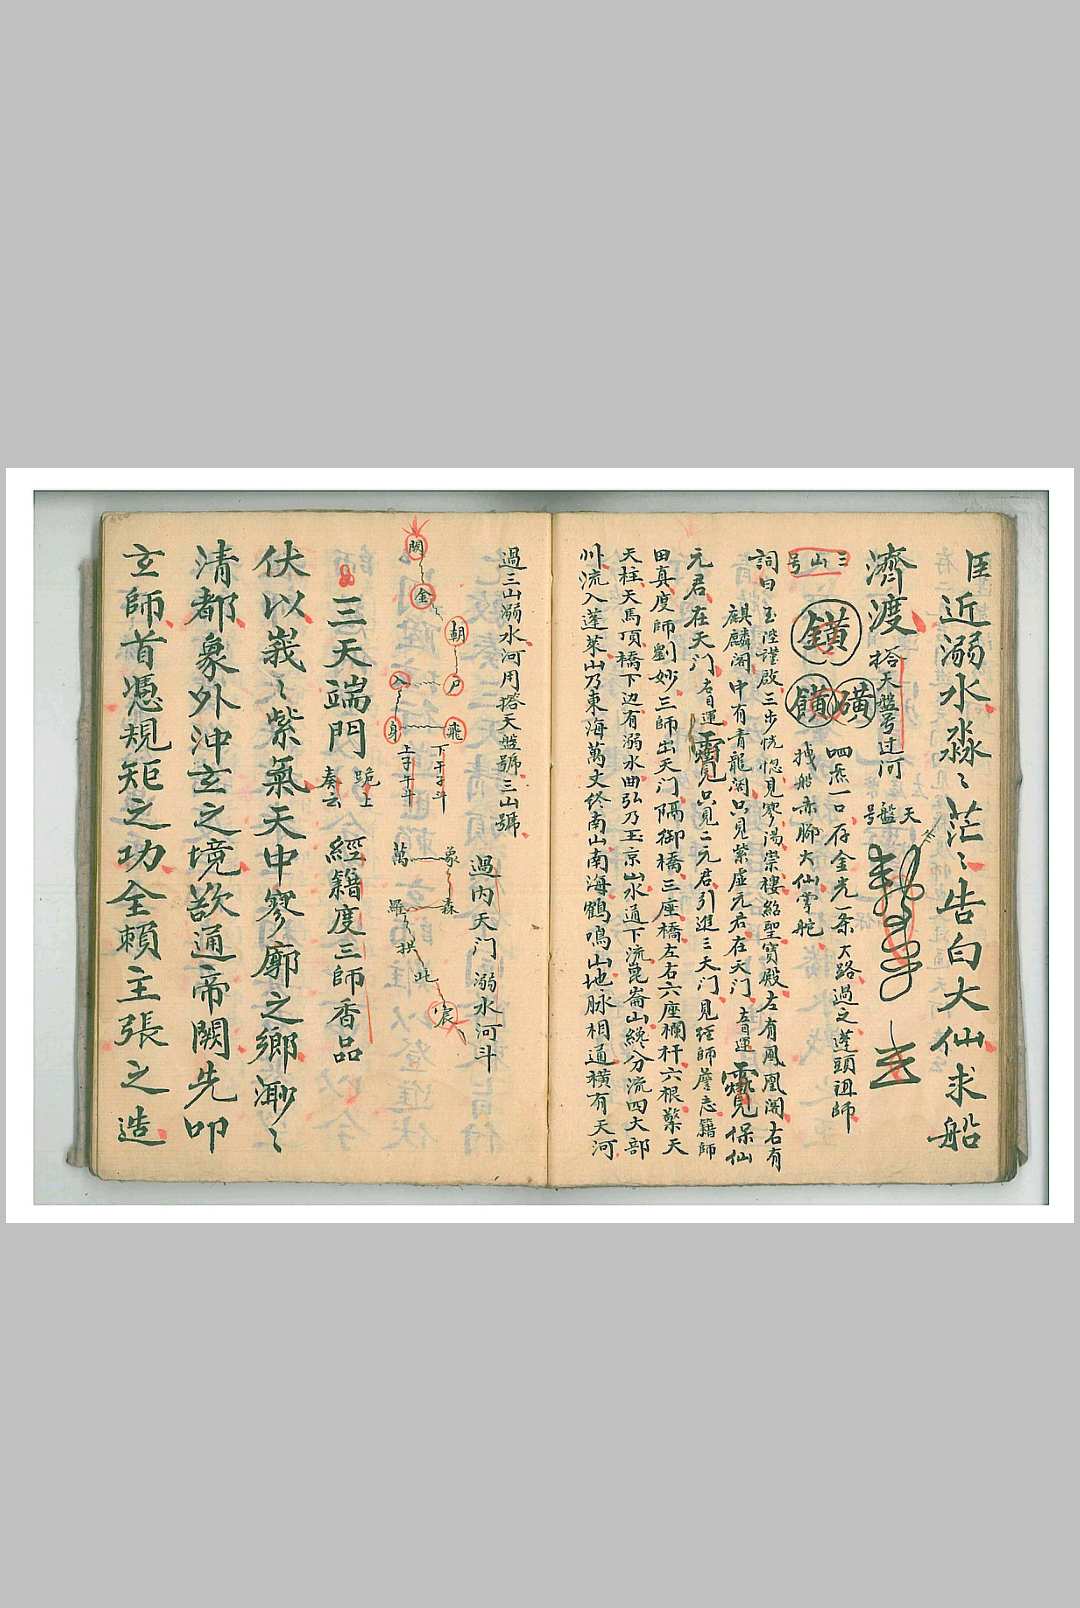 臣近溺水淼〻茫〻告白大仙求船
濟渡 搭天盤号过河 天盤号
三山号 鐄 磺 饙
呬炁一口存金光一条大路過之蓬頭祖師
撑船赤脚大仙掌舵
詞曰玉陛謹啟三步恍惚見寥陽崇樓絡聖寶殿左有鳳凰閣右有
麒麟閣中有青龍閣只見紫虛元君在天门左目運 保仙
元君在天门右目運 只見二元君引進三天门見經師 志籍師
田真度師劉妙三師出天门隔御橋三座橋左右六座欄杆六根擎天
天柱天馬項橋下边有溺水曲弘乃玉京山水通下流崑崙山纔分流四大部
州流入蓬萊山乃東海萬丈终南山南海鶴鳴山地脉相通橫有天河
過三山溺水河用搭天盤號三山號
過內天门溺水河斗
闕〻金〻朝〻户〻入〻身〻飛
下干子斗
上子午斗
象〻森〻羅〻萬
拱〻此〻宸
三天端門 跪上奏云 經籍度三師香品
伏以峩〻紫氣天中寥廓之鄉渺〻
清都象外沖玄之境欲通帝闕先叩
玄師首憑規矩之功全賴主張之造